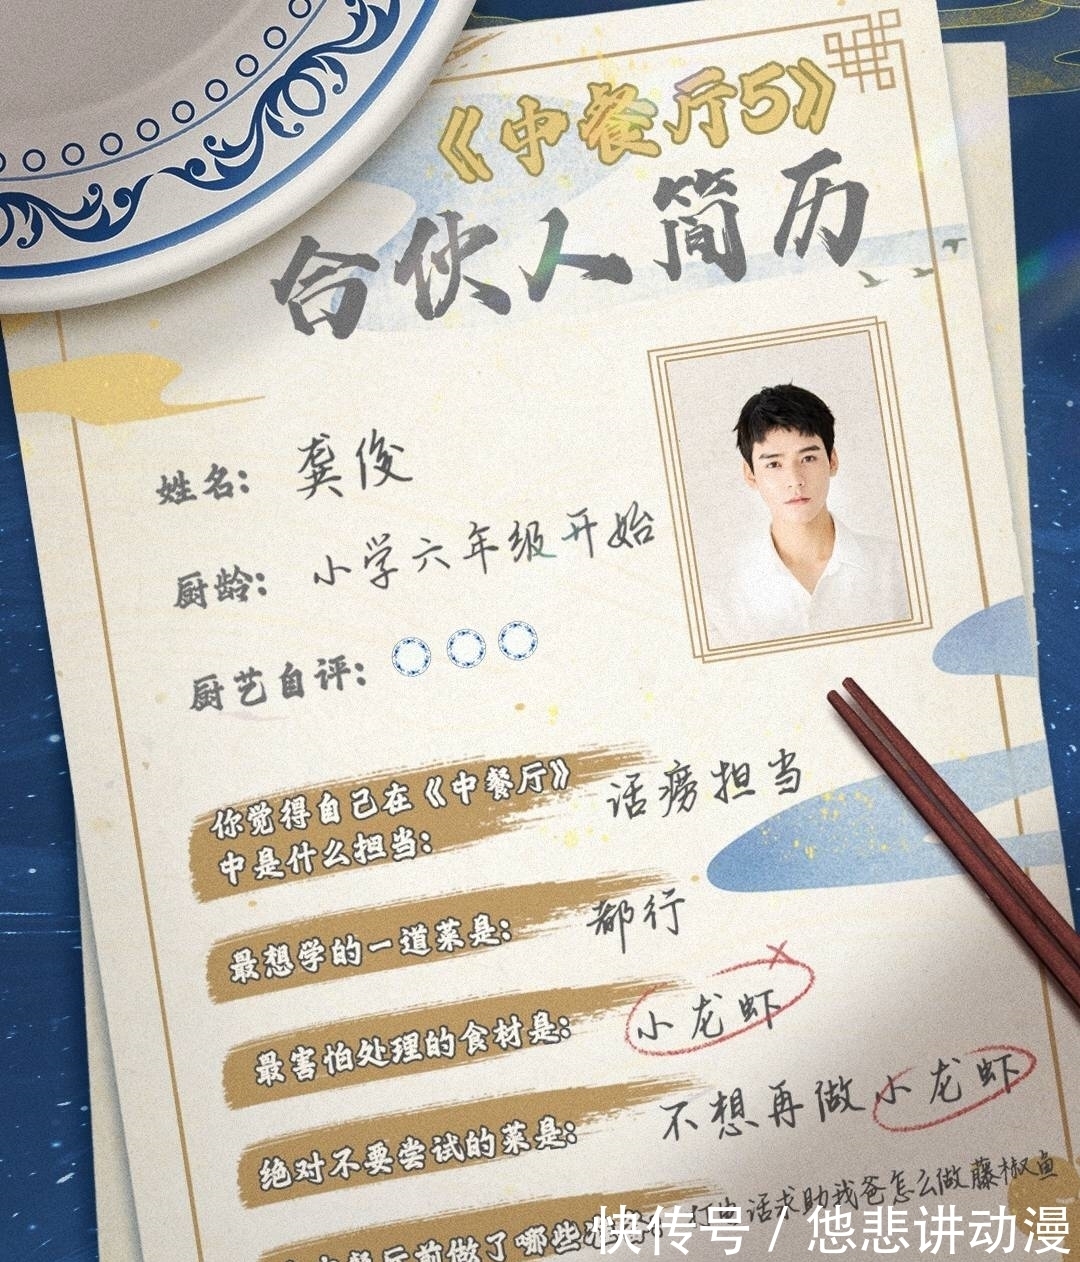 《中餐厅5》
合伙人简历
姓名: 龚俊
厨龄: 小学六年级开始
厨艺自评:
你觉得自己在《中餐厅》
中是什么担当: 话痨担当
最想学的一道菜是: 都行
最害怕处理的食材是: 小龙虾
绝对不要尝试的菜是: 不想再做小龙虾
餐厅前做了哪些 电话求助我爸怎么做藤椒鱼
快传号 / 怹悲讲动漫